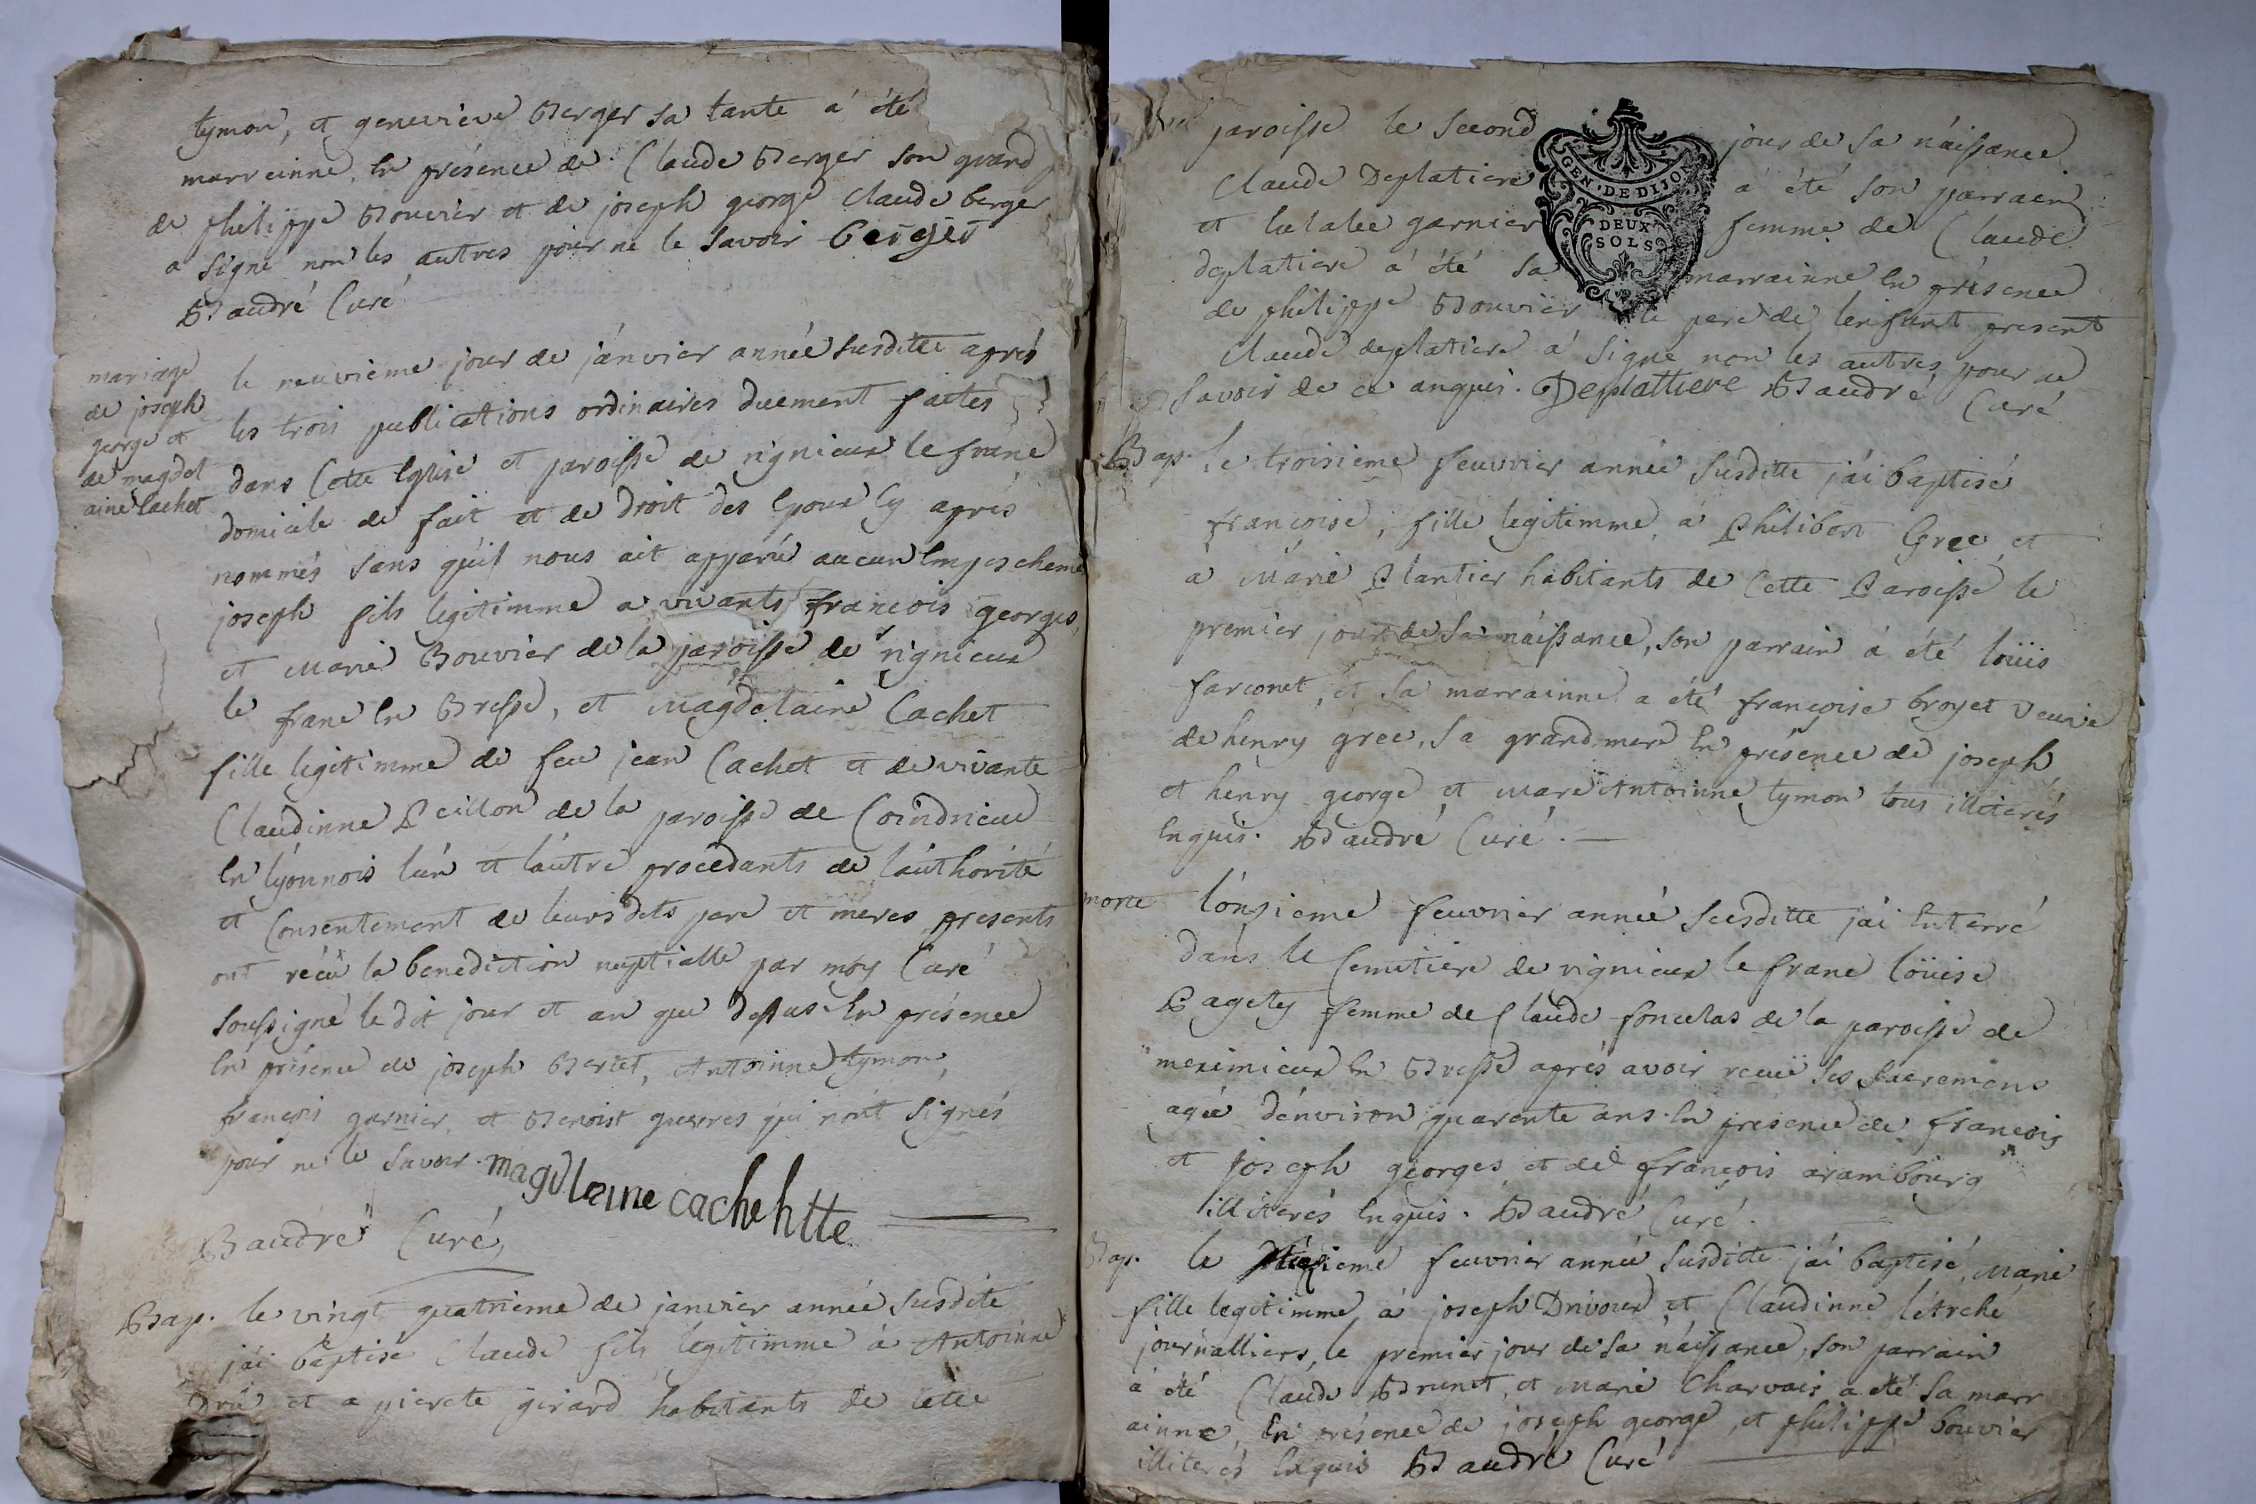 tymon, et genevieve Berger sa tante a été
marreinne, en présence de Claude Berger son grand
de philippe Bouvier et de joseph george Claude berger
a signé non les autres pour ne le savoir berger
Baudré Curé
mariage
de joseph
george et
de magdel
aine Cachet
le neuviéme jour de jánvier année susditte aprés
les trois publications ordinaires duement faites
dans Cette Eglise et paroisse de rignieux le franc
domicile de fait et de droit des Epoux Cy aprés
nommés sans qu'il nous ait apparu aucun Empescheme
joseph fils legitimme a vivants françois georges,
et Marie Bouvier de la paroisse de rignieux
le franc En Bresse, et Magdelaine Cachet
fille legitimme de feu jean Cachet et de vivante
Claudinne Peillon de la paroisse de Coindrieu
En lyonnois l'un et l'autre procédants de l'authorité
et Consentement de leurs dets pere et meres presents
ont récu la benediction nuptialle par moy Curé
soussigné le dit jour et an que dessus En présence
En présence de joseph Beriet, Antoinne tymon,
françois garnier, et Benoist guerres qui n'ont signés
pour ne le savoir. magdlaine cachehtte
Baudré Curé,
Bap. le vingt quatriéme de janvier année susdite
j'ai baptisé Claude fils legitimme à Antoinne
Dru et a pierete girard habitants de cette
paroisse le second jour de sa náissance
Claude Deplatiere a été son parrain
et Eulalee garnier femme de Claude
deplatiere a été sa marrainne En présence
de philippe Bouvier le pere de l'enfant present
Claude deplatiere a signé non les autres pour ne
savoir de ce enquis. Deplattiere Baudré Curé
GEN. DE DIJO
DEUX
SOLS
Bap. Le troisiéme feuvrier année susditte j'ái baptisé
françoise, fille legitimme, á Philibert Gree, et
à Marie Plantier habitants de Cette Paroisse le
premier jour de sa náissance, son parrain á été loüis
farconet, et sa marrainne a été françoise broyet veuve
de henry gree, sa grand mere En présence de joseph
et henry george et Mare Antoinne tymon tous illiterés
Enquis. Baudré Curé.
morte L'onzieme feuvrier année susditte j'ái Enterré
dans le Cemitiere de rignieux le franc loüise
Pagety femme de Claude foncelas de la paroisse de
meximieux En Bresse aprés avoir recuë ses sacremens
agée d'énviron quarente ans En présence de françois
et joseph georges et de françois arambourg
illiterés Enquis. Baudré Curé.
Bap. le feuvrier année susditte j'ái baptisé, Marie
fille legitimme, á joseph Drivoux et Claudinne l'Arché
journalliers, le premier jour de sa náissance, son parrain
a été Claude Brunet, et Marie Charvais a été sa marr
ainne, En présence de joseph george, et philippe bouvier
illiterés Enquis Baudré Curé